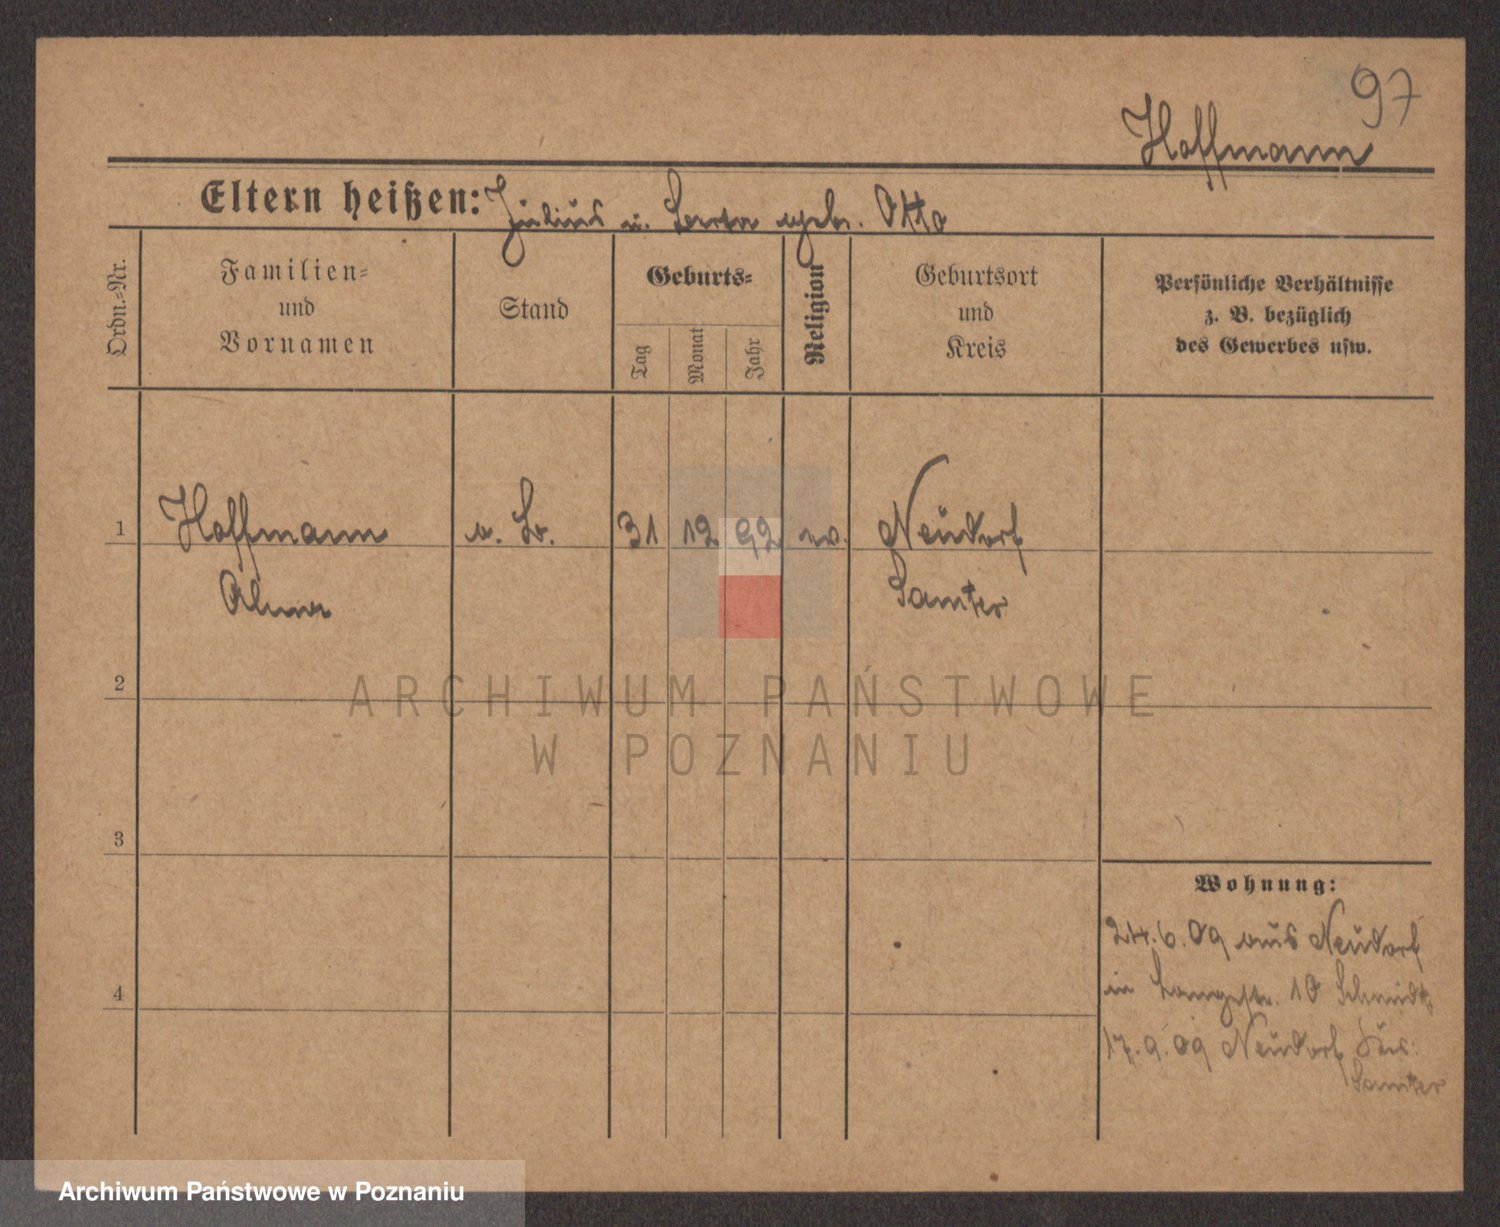 97
Hoffmann
Eltern heißen: Julius u. Berta geb. Otto
Ordn.=Nr.
Familien=
und
Vornamen
Stand
Geburts=
Tag
Monat
Jahr
Religion
Geburtsort
und
Kreis
Persönliche Verhältnisse
z. B. bezüglich
des Gewerbes usw.
1 Hoffmann 31 12 92 ev. Neudorf
Alma Samter
2
ARCHIWUM PAŃSTWOWE
W POZNANIU
3
Wohnung:
24.6.09 aus Neudorf
in Langestr. 10 Schmidt
4
17.9.09 Neudorf
Samter
Archiwum Państwowe w Poznaniu